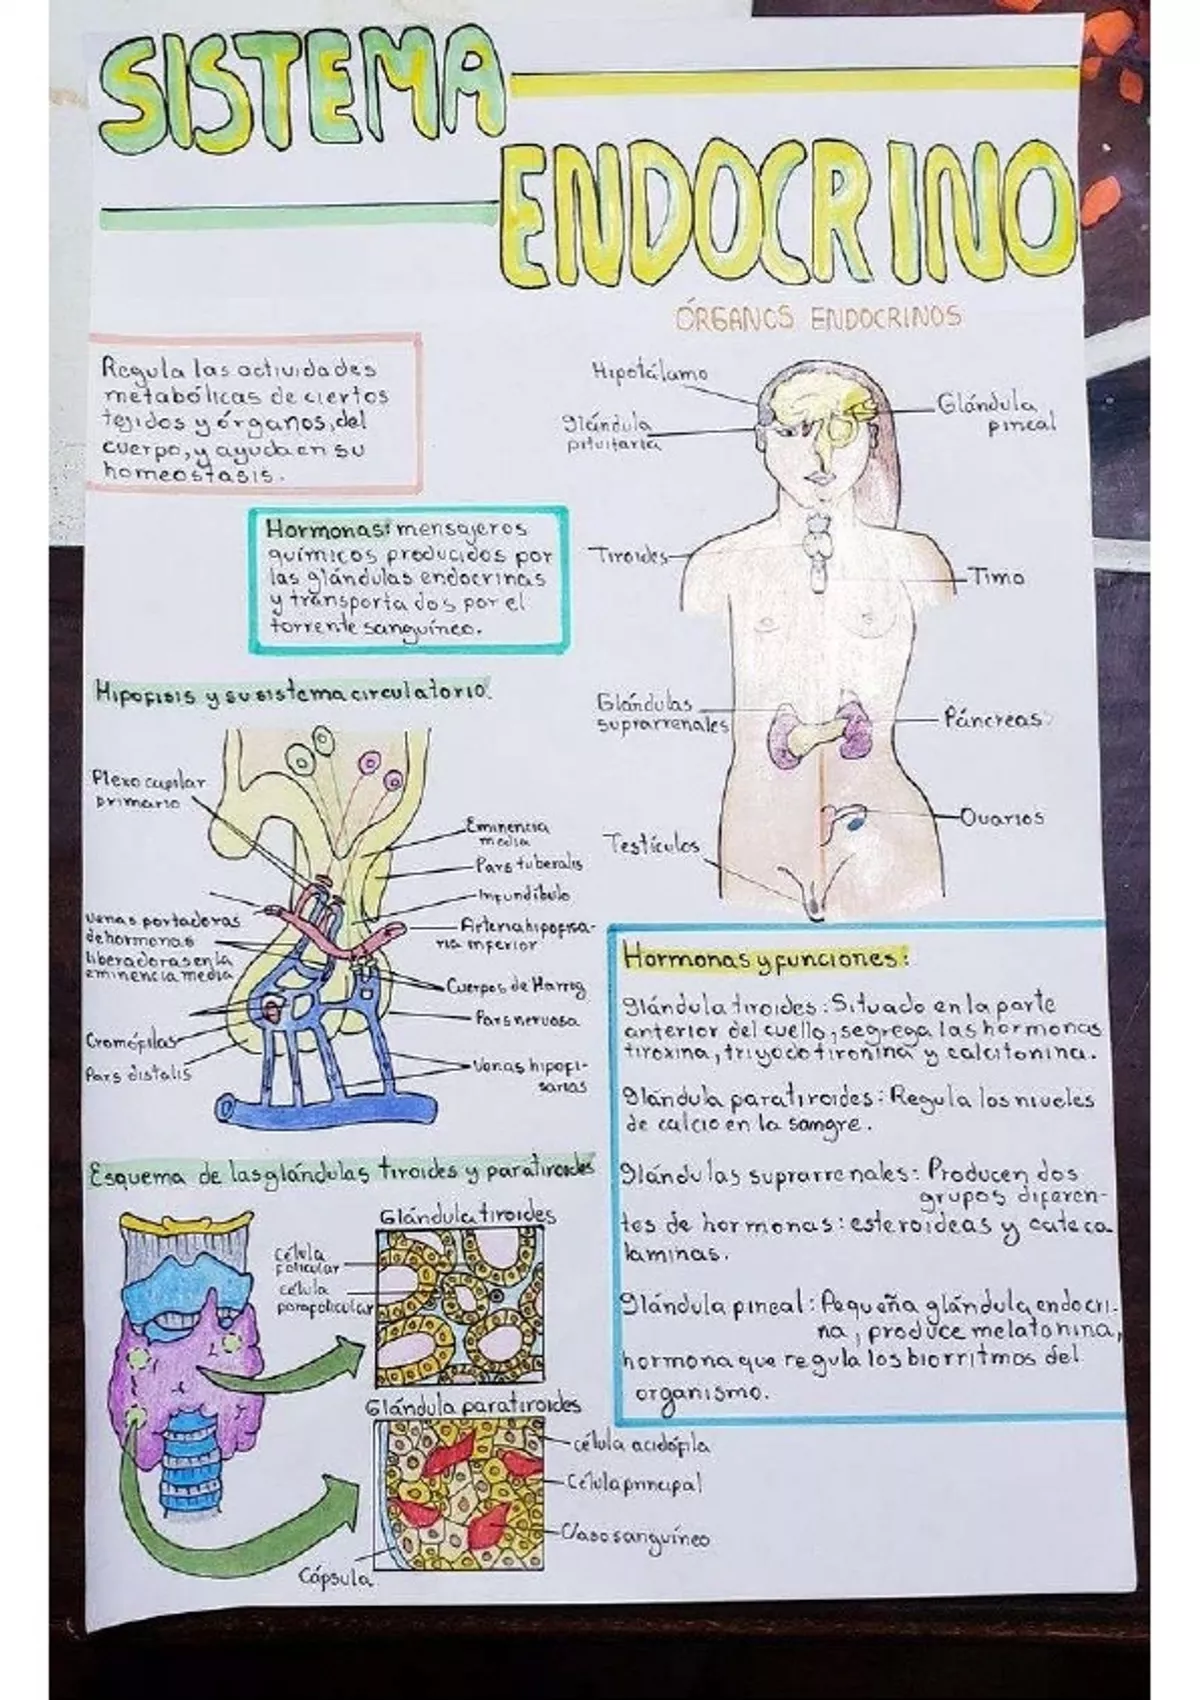 SISTEMA
ENDOCRINO
ÓRGANOS ENDOCRINOS
Regula las actividades
metabólicas de ciertos
tejidos y órganos, del
cuerpo, y ayuda en su
homeostasis.
Hormonas: mensajeros
químicos producidos por
las glándulas endocrinas
y transportados por el
torrente sanguíneo.
Hipotálamo
Glándula
pituitaria
Glándula
pineal
Tiroides
Timo
Glándulas
suprarrenales
Páncreas
Ovarios
Testículos
Hipofisis y su sistema circulatorio.
Plexo capilar
primario
Eminencia
media
Pars tuberalis
Infundíbulo
Arteria hipofisa-
ria inferior
Venas portadoras
de hormonas
liberadoras en la
eminencia media
Cuerpos de Harrog
Pars nervosa
Cromófilas
Pars distalis
Venas hipofi-
sarias
Esquema de las glándulas tiroides y paratiroides
Glándula tiroides
Célula
folicular
célula
parafolicular
Glándula paratiroides
célula acidófila
Célula principal
Vaso sanguíneo
Cápsula
Hormonas y funciones:
Glándula tiroides: Situado en la parte
anterior del cuello, segrega las hormonas
tiroxina, triyodotironina y calcitonina.
Glándula paratiroides: Regula los niveles
de calcio en la sangre.
Glándulas suprarrenales: Producen dos
grupos diferen-
tes de hormonas: esteroideas y cateca
laminas.
Glándula pineal: Pequeña glándula endocri-
na, produce melatonina,
hormona que regula los biorritmos del
organismo.